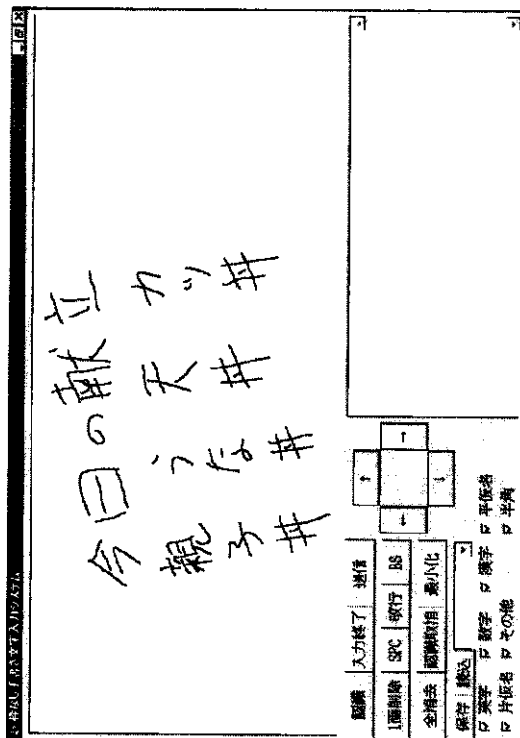 枠なし手書き文字入力システム
今日の献立
親子丼
うな丼
天丼
カツ丼
認識 入力終了 送信
1画削除 SPC 改行 BS
全消去 認識取消 最小化
保存 読込
英字 数字 漢字 平仮名
片仮名 その他 半角